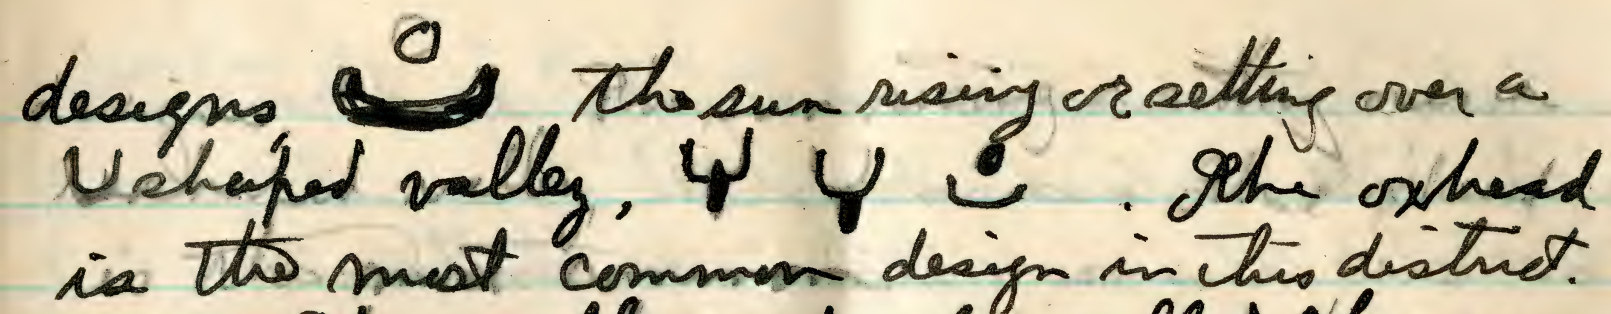 designs, the sun rising or setting over a
U shaped valley, . The oxhead
is the most common design in this district.